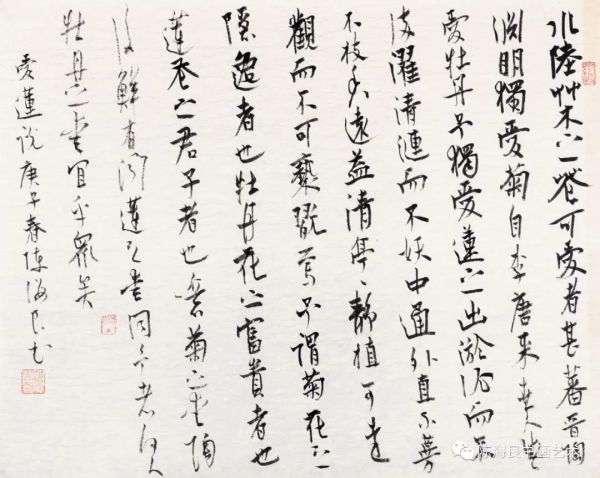 水陸艸木之花可愛者甚蕃晉陶
淵明獨愛菊自李唐来世人甚
愛牡丹予獨愛蓮之出淤泥而不
染濯清漣而不妖中通外直不蔓
不枝香遠益清亭〻静植可遠
觀而不可褻翫焉予謂菊花之
隱逸者也牡丹花之富貴者也
蓮花之君子者也噫菊之愛陶
後鮮有聞蓮之愛同予者何人
牡丹之愛宜乎眾矣
愛蓮説庚子春陳海良書
陈海良书画艺术